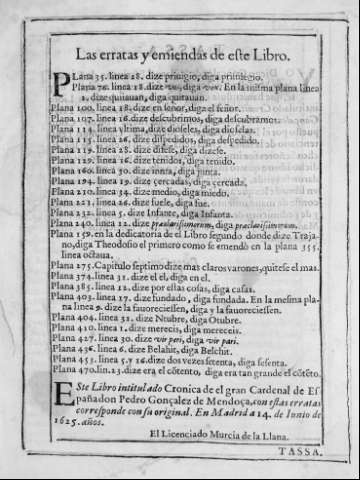 Las erratas y emiendas de este Libro.
PLana 35. linea 28. dize priuigio, diga priuilegio.
Plana 76. linea 18. dize vos, diga vox. En la misma plana linea
2. dize quiiauan, diga quitauan.
Plana 100. linea 18. dize en señor, diga el señor.
Plana 107. linea 16. dize descubrimos, diga descubramos.
Plana 114. linea vltima, dize dioseles, diga dioselas.
Plana 115. linea 26. dize dispedidos, diga despedido.
Plana 119. linea 25. dize disese, diga diesse.
Plana 129. linea 16. dize tenidos, diga tenido.
Plana 160. linea 30. dize innta, diga junta.
Plana 194. linea 19. dize çercadas, diga cercada.
Plana 210. linea 34. dize medio, diga miedo.
Plana 221. linea 26. dize fuele, diga fue.
Plana 232. linea 5. dize Infante, diga Infanta.
Plana 240. linea 22. dize præclarissimarum, diga præclarissimorum.
Plana 159. en la dedicatoria de el Libro segundo donde dize Traja-
no, diga Theodosio el primero como se emendò en la plana 355.
linea octaua.
Plana 275. Capitulo septimo dize mas claros varones, quitese el mas.
Plana 374. linea 31. dize el èl, diga en el.
Plana 385. linea 12. dize por essas cosas, diga casas.
Plana 403. linea 17. dize fundado, diga fundada. En la mesma pla-
na linea 9. dize la fauoreciessen, diga y la fauoreciessen.
Plana 404. linea 31. dize Ntubre, diga Otubre.
Plana 410. linea 1. dize merecis, diga mereceis.
Plana 427. linea 30. dize vir peri, diga vir pari.
Plana 436. linea 6. dize Belahit, diga Belchit.
Plana 453. linea 5. y 26. dize dos vezes setenta, diga sesenta.
Plana 470. lin. 23. dize era el cõtento, diga era tan grande el cõtẽto.
ESte Libro intitulado Cronica de el gran Cardenal de Es-
paña don Pedro Gonçalez de Mendoça, con estas erratas
corresponde con su original. En Madrid a 14. de Iunio de
1625. años.
El Licenciado Murcia de la Llana.
TASSA.